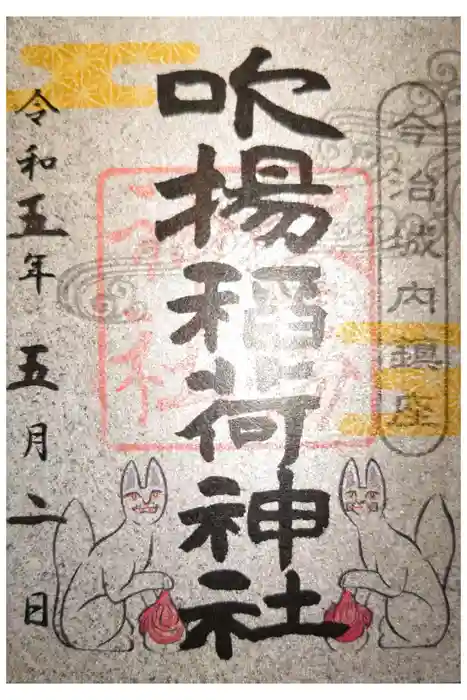 今治城内鎮座
吹揚稲荷神社
令和五年 五月 二日